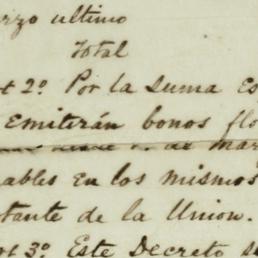 rzo ultimo
Total
t 2º. Por la suma es
emiterán bonos flo
de mar
ables en los mismos
tante de la Union.
t 3º. Este Decreto s